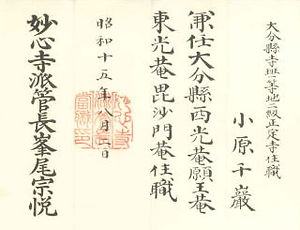 大分縣寺班一等地二級正定寺住職
小原千巖
兼任大分縣西光菴願王菴
東光菴毘沙門菴住職
昭和十五年八月二日
妙心寺派管長峯尾宗悦